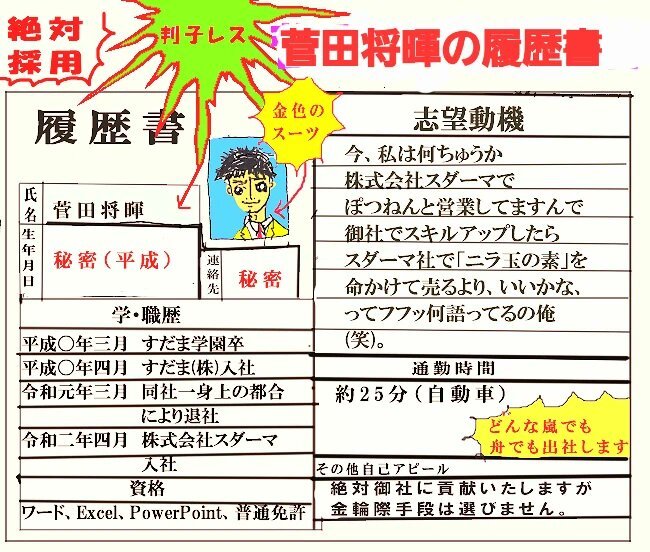 絶対
採用
判子レス
菅田将暉の履歴書
履歴書
金色の
スーツ
氏名
菅田将暉
生年月日
秘密(平成)
連絡先
秘密
学・職歴
平成〇年三月 すだま学園卒
平成〇年四月 すだま(株)入社
令和元年三月 同社一身上の都合
により退社
令和二年四月 株式会社スダーマ
入社
資格
ワード、Excel、PowerPoint、普通免許
志望動機
今、私は何ちゅうか
株式会社スダーマで
ぽつねんと営業してますんで
御社でスキルアップしたら
スダーマ社で「ニラ玉の素」を
命かけて売るより、いいかな、
ってフフッ何語ってるの俺
(笑)。
通勤時間
約25分(自動車)
どんな嵐でも
舟でも出社します
その他自己アピール
絶対御社に貢献いたしますが
金輪際手段は選びません。